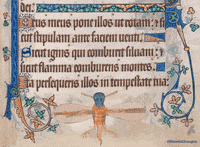 der.
Deus meus pone illos ut rotam: et
sicut stipulam ante faciem uenti.
Sicut ignis qui comburit siluam: et
sicut flamma comburens montes.
Ita persequeris illos in tempestate tua: